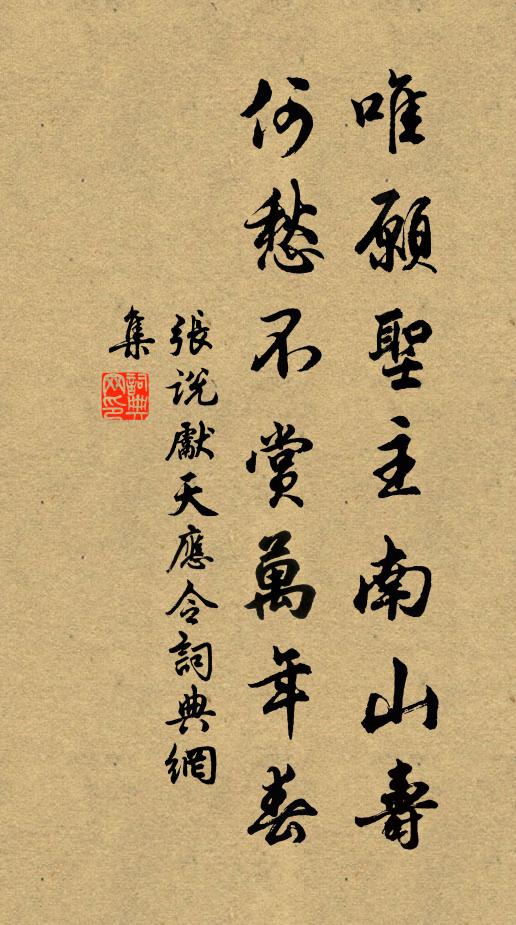 唯願聖主南山壽
何愁不賞萬年春
張說獻天應令詞典網
集
詞典網印